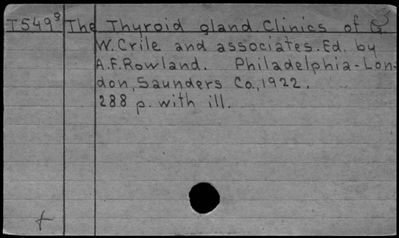 T549⁹ The Thyroid gland Clinics of G
W. Crile and associates. Ed. by
A.F. Rowland. Philadelphia-Lon-
don, Saunders Co., 1922.
288 p. with ill.